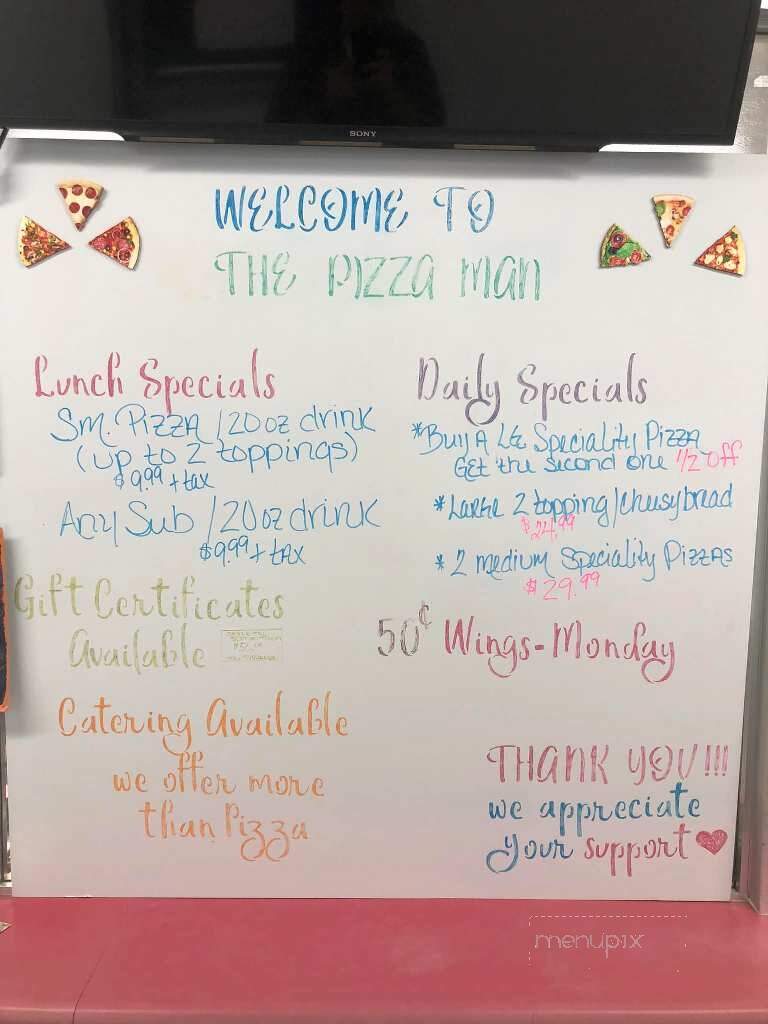 SONY
WELCOME TO
THE PIZZA MAN
Lunch Specials
Sm. PIZZA / 20 oz drink
(up to 2 toppings)
$9.99 + tax
Any Sub / 20 oz drink
$9.99 + tax
Gift Certificates
Available
Catering Available
we offer more
than Pizza
Daily Specials
*Buy A LG Speciality Pizza
Get the second one 1/2 off
* Large 2 topping / cheesybread
$24.99
* 2 medium Speciality Pizzas
$29.99
50¢ Wings - Monday
THANK YOU!!!
we appreciate
your support
menupix